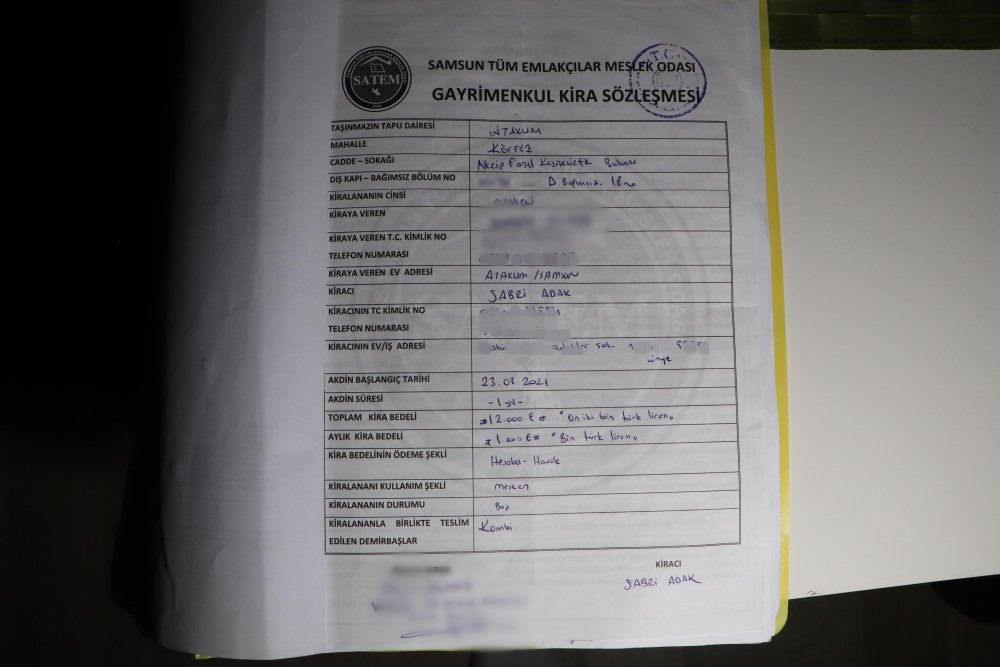 SATEM
SAMSUN TÜM EMLAKÇILAR MESLEK ODASI
T.C.
GAYRİMENKUL KİRA SÖZLEŞMESİ
TAŞINMAZIN TAPU DAİRESİ ATAKUM
MAHALLE KÖRFEZ
CADDE – SOKAĞI Necip Fazıl Kısakürek Bulvarı
DIŞ KAPI – BAĞIMSIZ BÖLÜM NO D Bağımsız. 18
KİRALANANIN CİNSİ mesken
KİRAYA VEREN
KİRAYA VEREN T.C. KİMLİK NO
TELEFON NUMARASI
KİRAYA VEREN EV ADRESİ ATAKUM /SAMSUN
KİRACI ŞABRİ ADAK
KİRACININ TC KİMLİK NO
TELEFON NUMARASI
KİRACININ EV/İŞ ADRESİ sok.
AKDİN BAŞLANGIÇ TARİHİ 23.03.2021
AKDİN SÜRESİ -1 yıl-
TOPLAM KİRA BEDELİ 12.000 ₺ "On iki bin türk lirası"
AYLIK KİRA BEDELİ 1.000 ₺ "Bin türk lirası"
KİRA BEDELİNİN ÖDEME ŞEKLİ Hesaba- Havale
KİRALANANI KULLANIM ŞEKLİ mesken
KİRALANANIN DURUMU Boş
KİRALANANLA BİRLİKTE TESLİM Kombi
EDİLEN DEMİRBAŞLAR
KİRACI
ŞABRİ ADAK